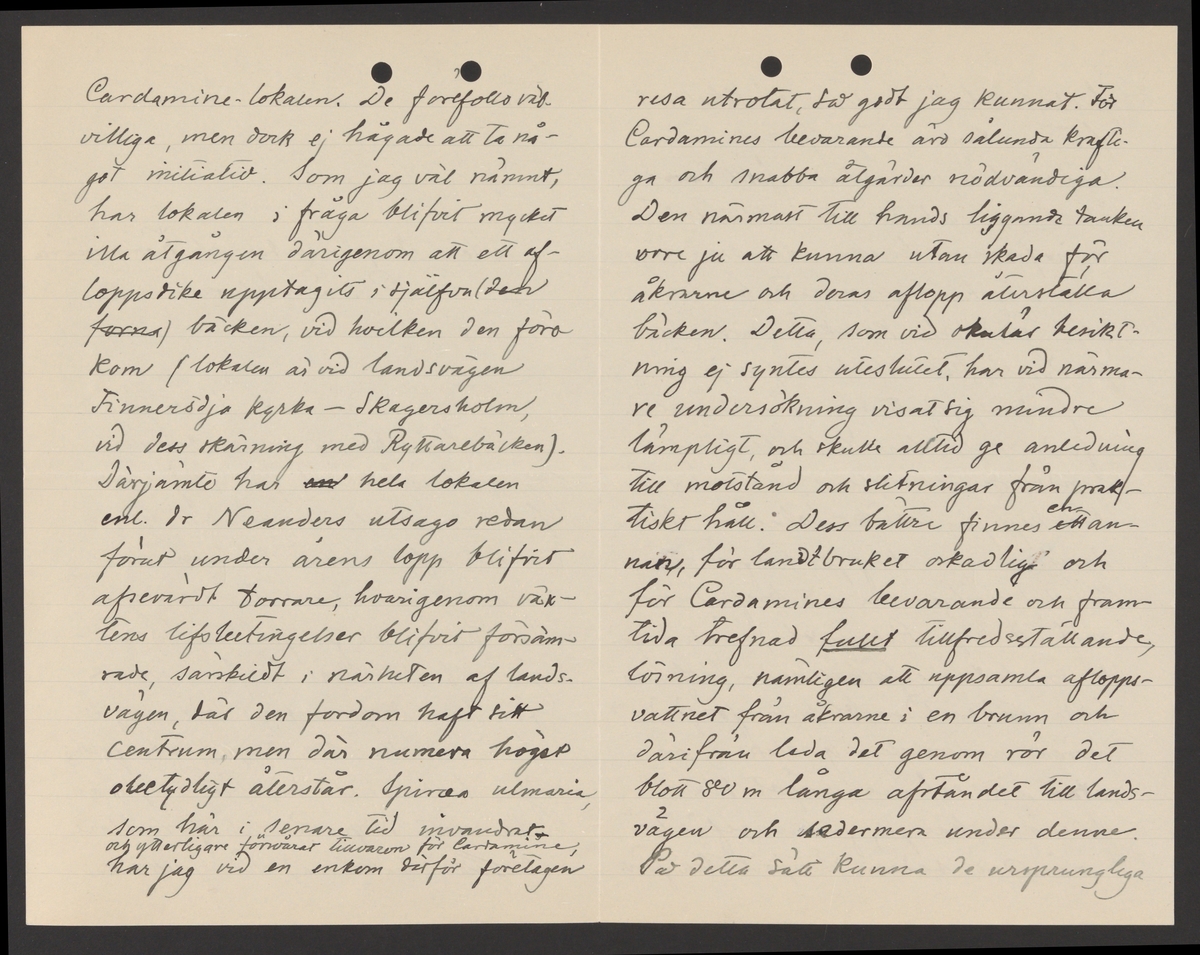 Cardamine-lokalen. De föreföllo väl-
villiga, men dock ej hågade att ta nå-
got initiativ. Som jag väl nämnt,
har lokalen i fråga blifvit mycket
illa åtgången därigenom att ett af-
loppsdike upptagits i själfva (den
forna) bäcken, vid hvilken den före-
kom (lokalen är vid landsvägen
Finnerödja kyrka – Skagersholm,
vid dess skärning med Ryttarebäcken).
Därjämte har hela lokalen
enl. Dr Neanders utsago redan
förut under årens lopp blifvit
afsevärdt torrare, hvarigenom väx-
tens lifsbetingelser blifvit försäm-
rade, särskildt i närheten af lands-
vägen, där den fordom haft sitt
centrum, men där numera högst
obetydligt återstår. Spiræa ulmaria,
som här i senare tid invandrat
och ytterligare försvårar tillvaron för Cardamine,
har jag vid en enkom därför företagen
resa utrotat, så godt jag kunnat. För
Cardamines bevarande äro sålunda krafti-
ga och snabba åtgärder nödvändiga.
Den närmast till hands liggande tanken
vore ju att kunna utan skada för
åkrarne och deras aflopp återställa
bäcken. Detta, som vid okulär besikt-
ning ej syntes uteslutet, har vid närma-
re undersökning visat sig mindre
lämpligt, och skulle alltid ge anledning
till motstånd och slitningar från prak-
tiskt håll. Dess bättre finnes en an-
nan, för landtbruket oskadlig och
för Cardamines bevarande och fram-
tida trefnad fullt tillfredsställande,
lösning, nämligen att uppsamla aflopps-
vattnet från åkrarne i en brunn och
därifrån leda det genom rör det
blott 80 m långa afståndet till lands-
vägen och sedermera under denne.
På detta sätt kunna de ursprungliga